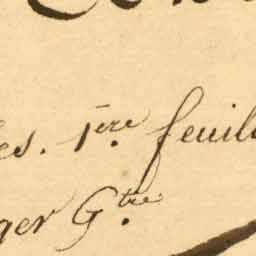 es. 1ere feuil
ger Gtre